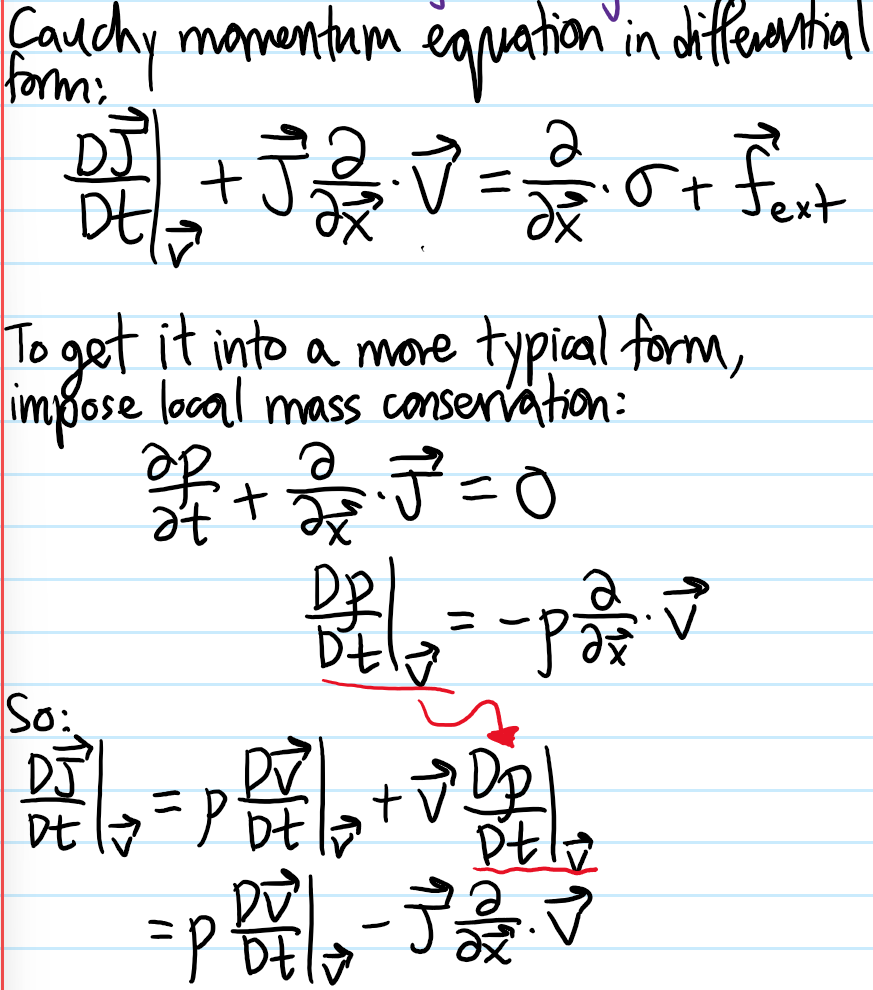 Cauchy momentum equation in differential
form:
$\left.\frac{D\vec{J}}{Dt}\right|_{\vec{v}} + \vec{J}\frac{\partial}{\partial\vec{x}}\cdot\vec{v} = \frac{\partial}{\partial\vec{x}}\cdot\sigma + \vec{f}_{ext}$
To get it into a more typical form,
impose local mass conservation:
$\frac{\partial\rho}{\partial t} + \frac{\partial}{\partial\vec{x}}\cdot\vec{J} = 0$
$\left.\frac{D\rho}{Dt}\right|_{\vec{v}} = -\rho\frac{\partial}{\partial\vec{x}}\cdot\vec{v}$
So:
$\left.\frac{D\vec{J}}{Dt}\right|_{\vec{v}} = \rho\left.\frac{D\vec{v}}{Dt}\right|_{\vec{v}} + \vec{v}\left.\frac{D\rho}{Dt}\right|_{\vec{v}}$
$= \rho\left.\frac{D\vec{v}}{Dt}\right|_{\vec{v}} - \vec{J}\frac{\partial}{\partial\vec{x}}\cdot\vec{v}$